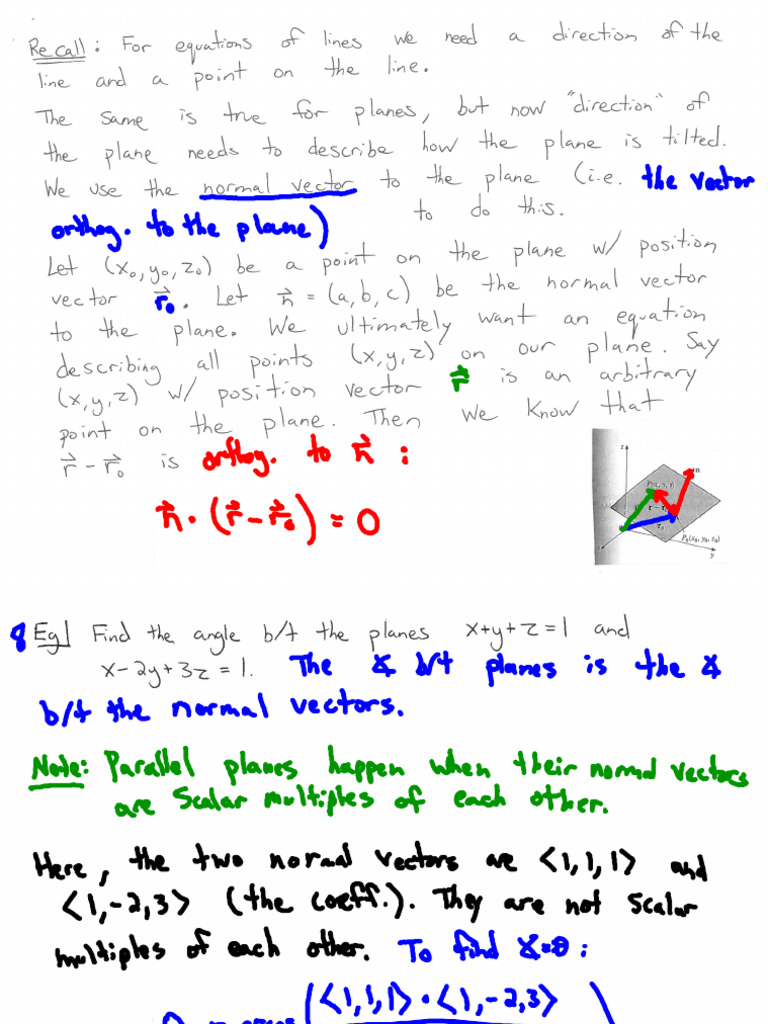 Recall: For equations of lines we need a direction of the
line and a point on the line.
The same is true for planes, but now "direction" of
the plane needs to describe how the plane is tilted.
We use the normal vector to the plane (i.e. the vector
orthog. to the plane) to do this.
Let (x₀,y₀,z₀) be a point on the plane w/ position
vector r⃗₀. Let n⃗ = (a,b,c) be the normal vector
to the plane. We ultimately want an equation
describing all points (x,y,z) on our plane. Say
(x,y,z) w/ position vector r⃗ is an arbitrary
point on the plane. Then we know that
r⃗ - r⃗₀ is orthog. to n⃗ :
n⃗ · (r⃗ - r⃗₀) = 0
z
n
P(x, y, z)
r - r₀
r₀
P₀(x₀, y₀, z₀)
x
y
8 Eg] Find the angle b/t the planes x+y+z=1 and
x-2y+3z=1. The ∡ b/t planes is the ∡
b/t the normal vectors.
Note: Parallel planes happen when their normal vectors
are scalar multiples of each other.
Here, the two normal vectors are <1,1,1> and
<1,-2,3> (the coeff.). They are not scalar
multiples of each other. To find ∡=θ :
(<1,1,1> · <1,-2,3>)